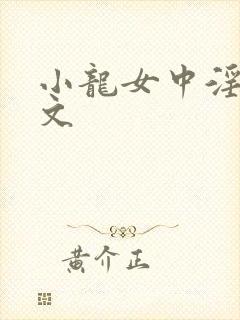 小龍女中淫
文
黄介正